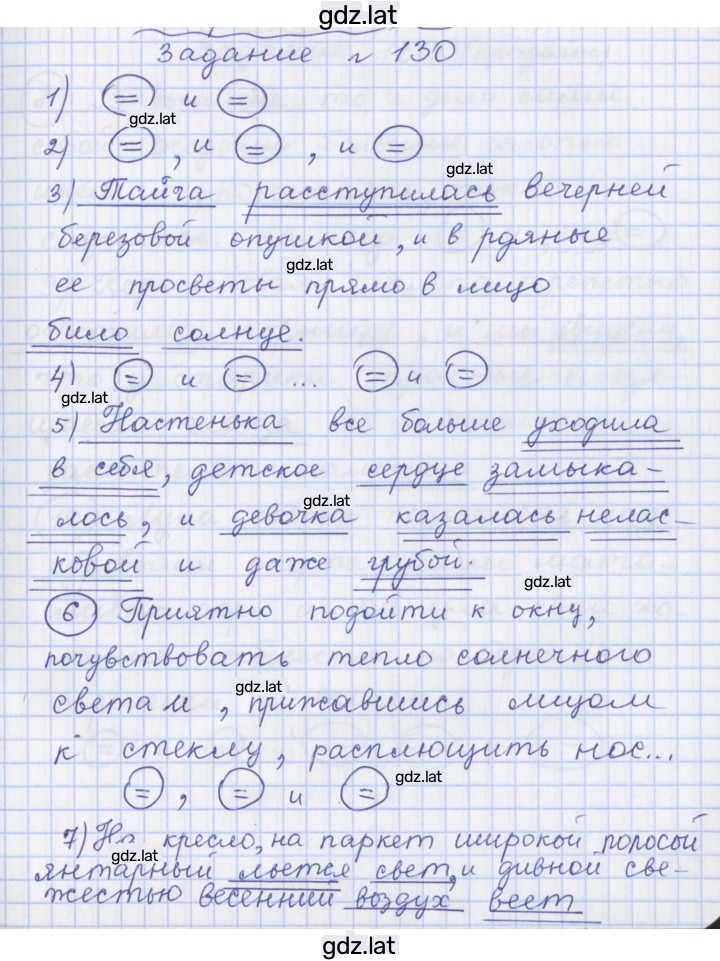 gdz.lat
Задание № 130
1) = и =
gdz.lat
2) = , и = , и =
gdz.lat
3) Тайга расступилась вечерней
березовой опушкой, и в рдяные
gdz.lat
ее просветы прямо в лицо
било солнце.
4) = и = ... = и =
gdz.lat
5) Настенька все больше уходила
в себя, детское сердце замыка-
gdz.lat
лось, и девочка казалась нелас-
ковой и даже грубой.
gdz.lat
6 Приятно подойти к окну,
почувствовать тепло солнечного
gdz.lat
света и, прижавшись лицом
к стеклу, расплющить нос...
gdz.lat
= , = и =
7) На кресло, на паркет широкой полосой
gdz.lat
янтарный льется свет, и дивной све-
жестью весенний воздух веет
gdz.lat